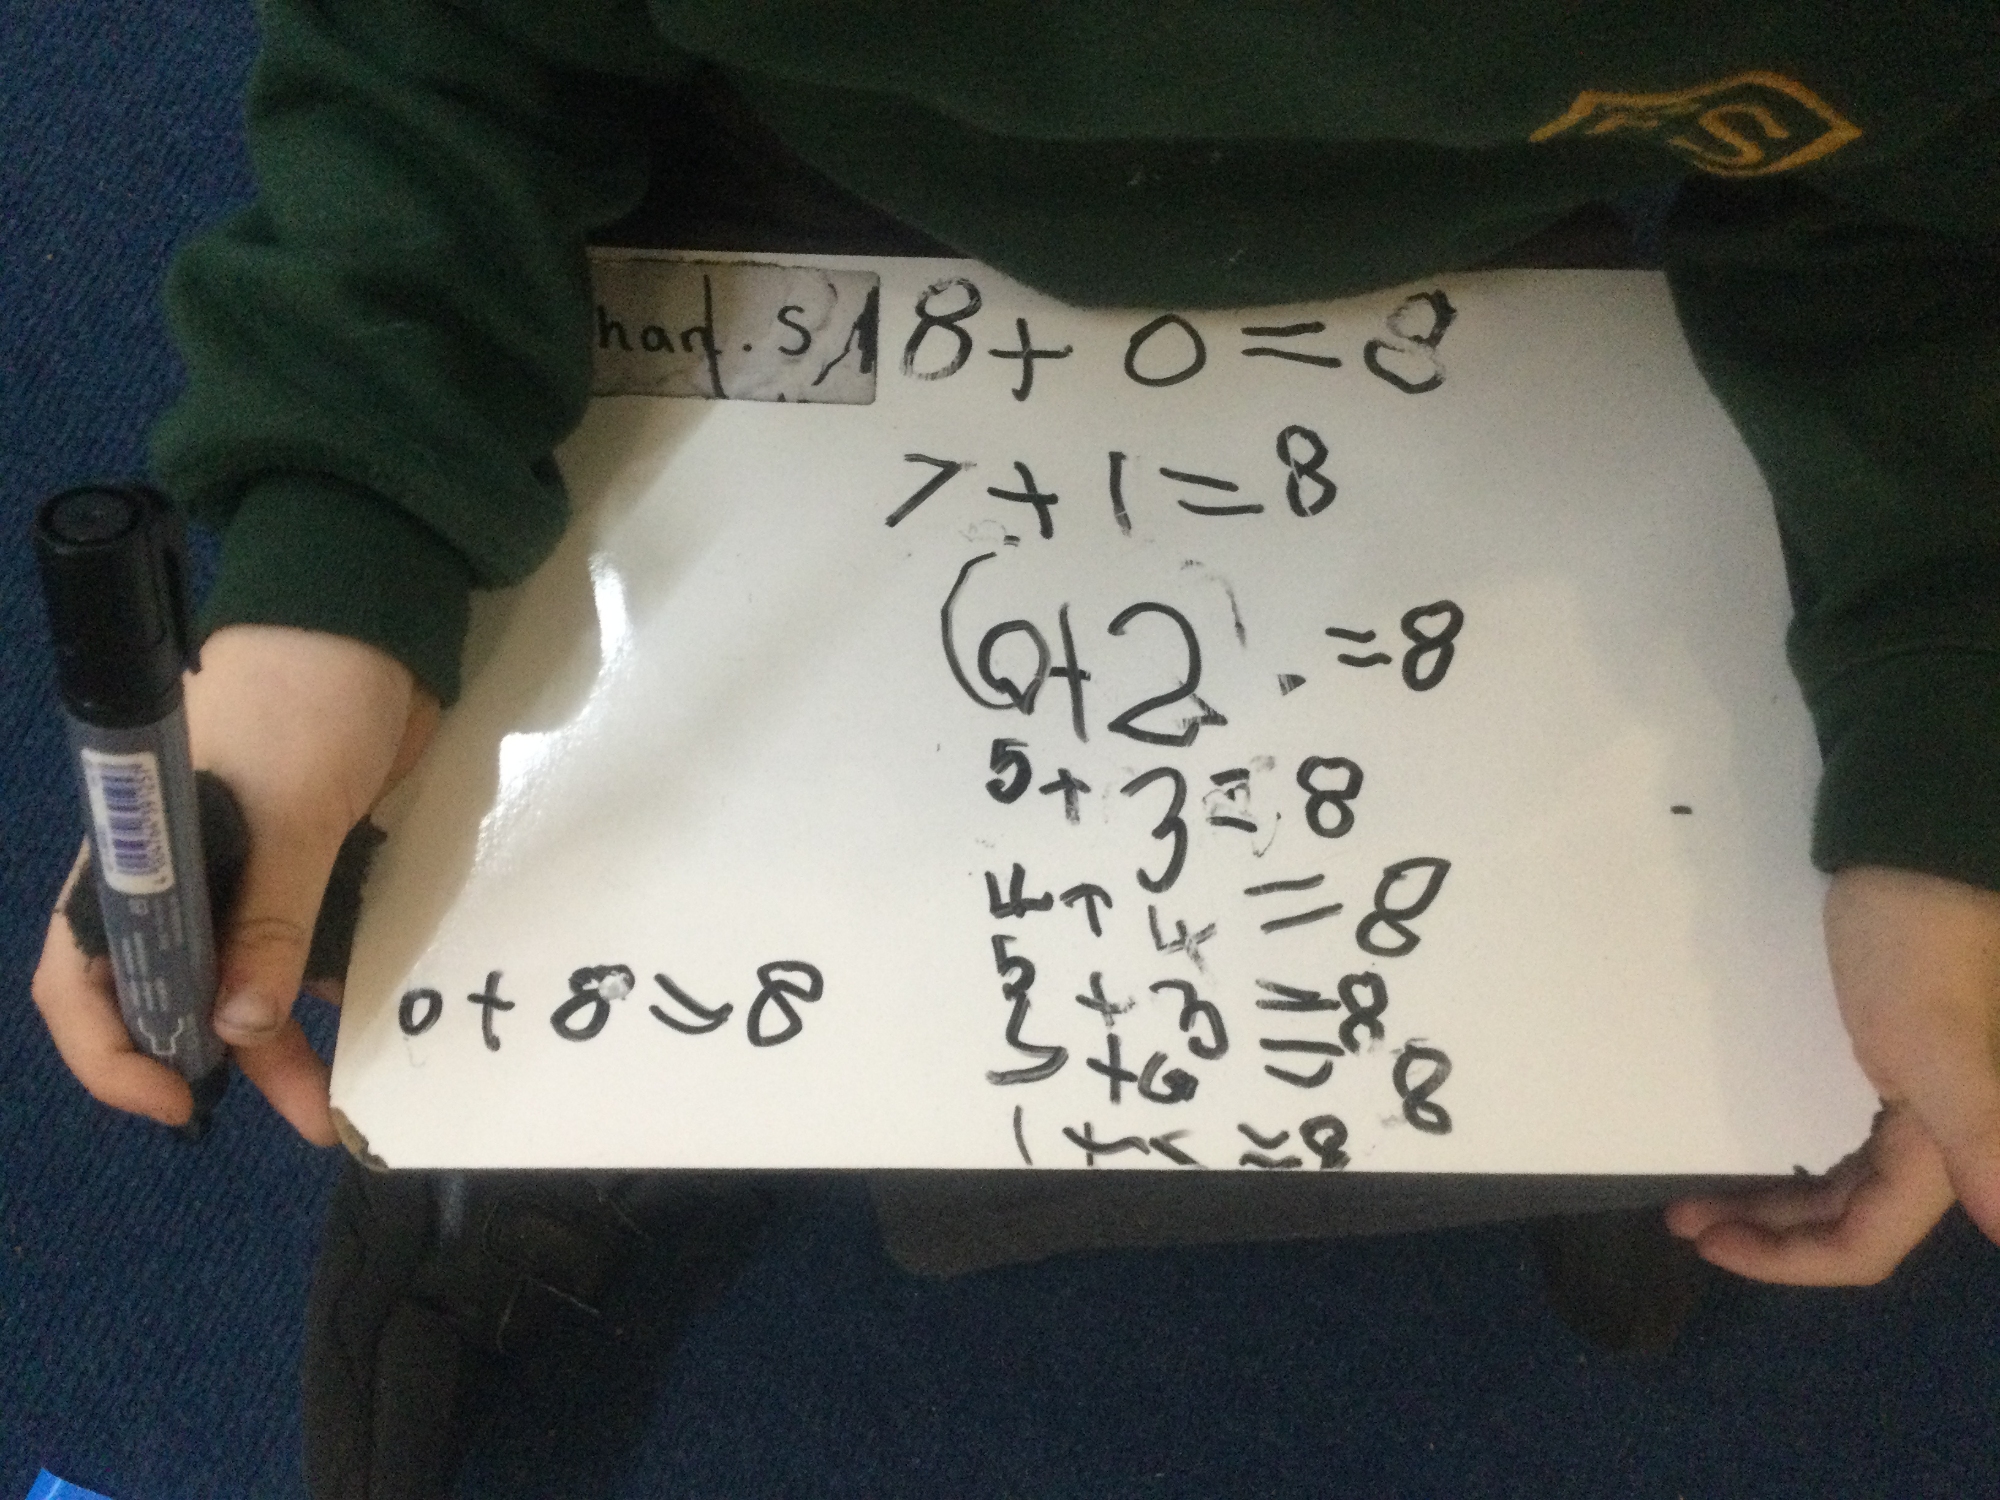 han.S
8+0=8
7+1=8
6+2=8
5+3=8
4+4=8
5+3=8
2+6=8
0+8=8